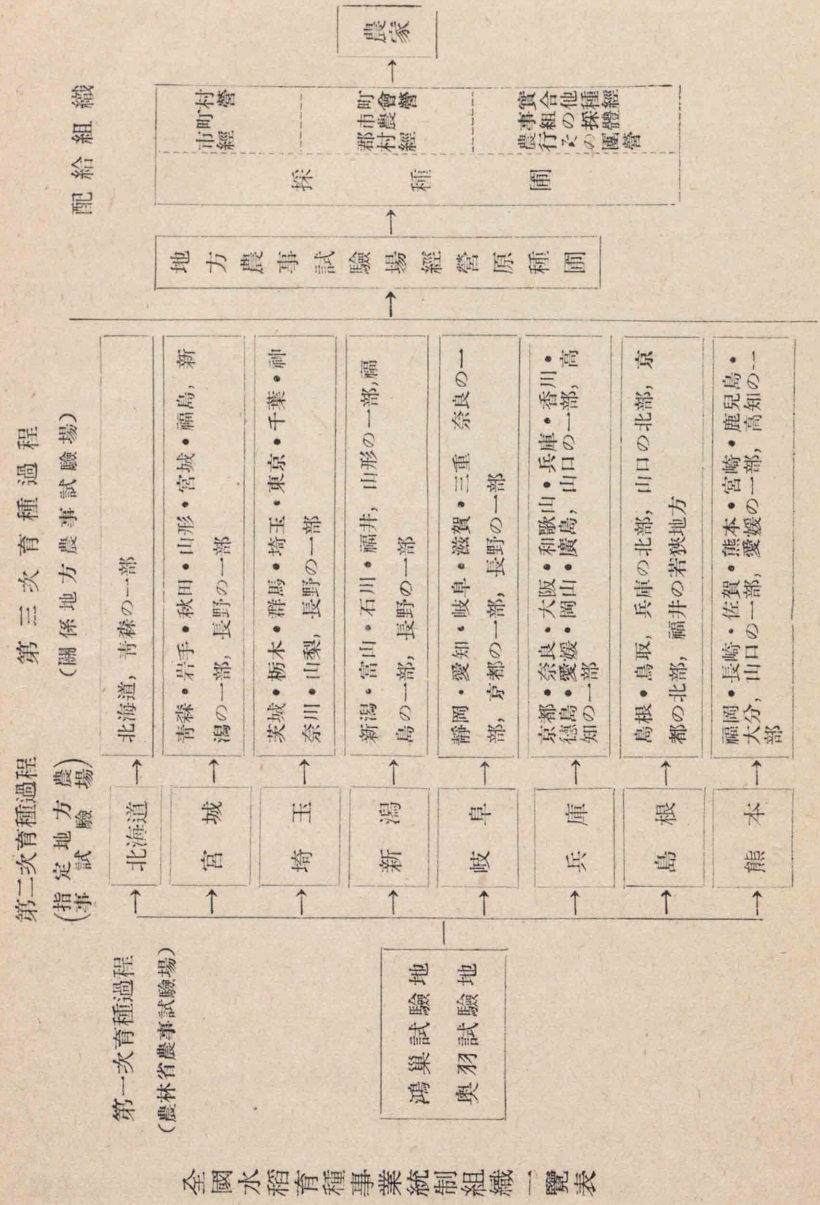 全國水稻育種事業統制組織一覽表
第一次育種過程
(農林省農事試驗場)
鴻巢試驗地
奧羽試驗地
第二次育種過程
(指定地方農
事試驗場)
北海道
宮城
埼玉
新潟
岐阜
兵庫
島根
熊本
第三次育種過程
(關係地方農事試驗場)
北海道，靑森の一部
靑森・岩手・秋田・山形・宮城・福島，新
潟の一部，長野の一部
茨城・栃木・群馬・埼玉・東京・千葉・神
奈川・山梨，長野の一部
新潟・富山・石川・福井，山形の一部，福
島の一部，長野の一部
靜岡・愛知・岐阜・滋賀・三重　奈良の一
部，京都の一部，長野の一部
京都・奈良・大阪・和歌山・兵庫・香川・
德島・愛媛・岡山・廣島，山口の一部，高
知の一部
島根・鳥取，兵庫の北部，山口の北部，京
都の北部，福井の若狹地方
福岡・長崎・佐賀・熊本・宮崎・鹿兒島・
大分，山口の一部，愛媛の一部，高知の一
部
配給組織
地方農事試驗場經營原種圃
採種圃
市町村
經營
郡市町
村農會
經營
農事實
行組合
その他
の採種
團體經
營
農家